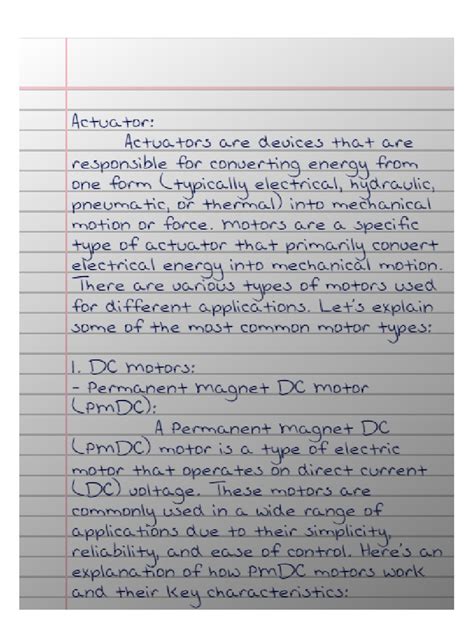 Actuator:
Actuators are devices that are
responsible for converting energy from
one form (typically electrical, hydraulic,
pneumatic, or thermal) into mechanical
motion or force. Motors are a specific
type of actuator that primarily convert
electrical energy into mechanical motion.
There are various types of motors used
for different applications. Let's explain
some of the most common motor types:
1. DC Motors:
- Permanent Magnet DC Motor
(PMDC):
A Permanent Magnet DC
(PMDC) motor is a type of electric
motor that operates on direct current
(DC) voltage. These motors are
commonly used in a wide range of
applications due to their simplicity,
reliability, and ease of control. Here's an
explanation of how PMDC motors work
and their key characteristics: